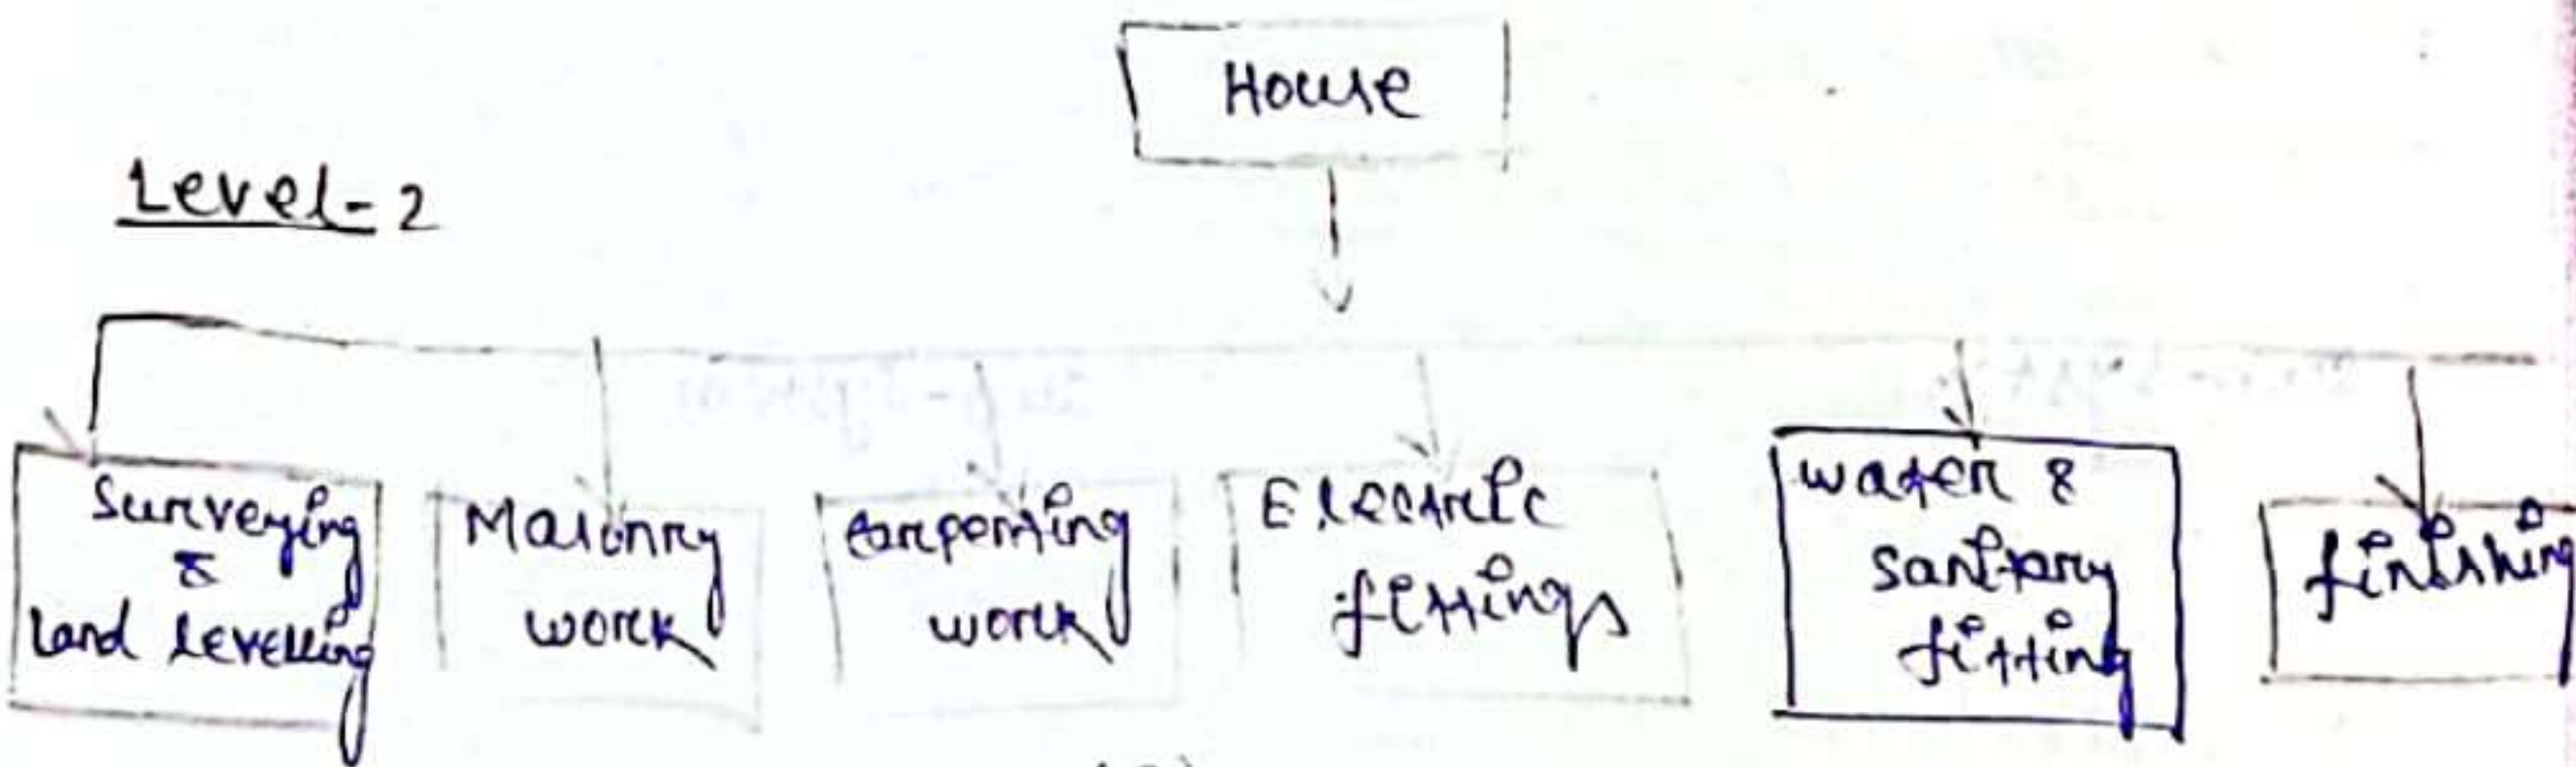 House
Level-2
Surveying
&
Land levelling
Masonry
work
carpenting
work
Electric
fittings
water &
sanitary
fitting
finishing